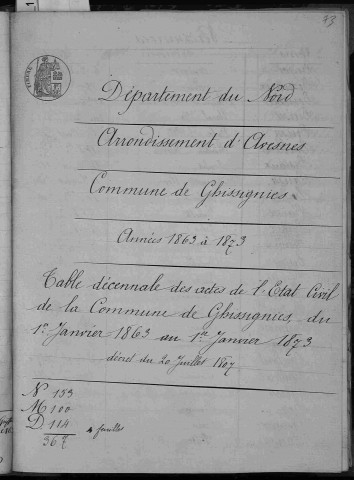 93
Département du Nord
Arrondissement d'Avesnes
Commune de Ghissignies
Années 1863 à 1873
Table décennale des actes de l'Etat Civil
de la Commune de Ghissignies, du
1er Janvier 1863 au 1er Janvier 1873
décret du 20 Juillet 1807
N 153
M 100
D 114 4 feuilles
367